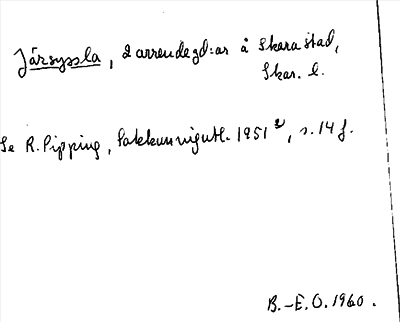 Järsyssla, 2 arrendegd:ar å Skara stad,
Skar. l.
Se R. Pipping, Sakkunnigutl. 1951 2/2, s. 14 f.
B.-E.O. 1960.